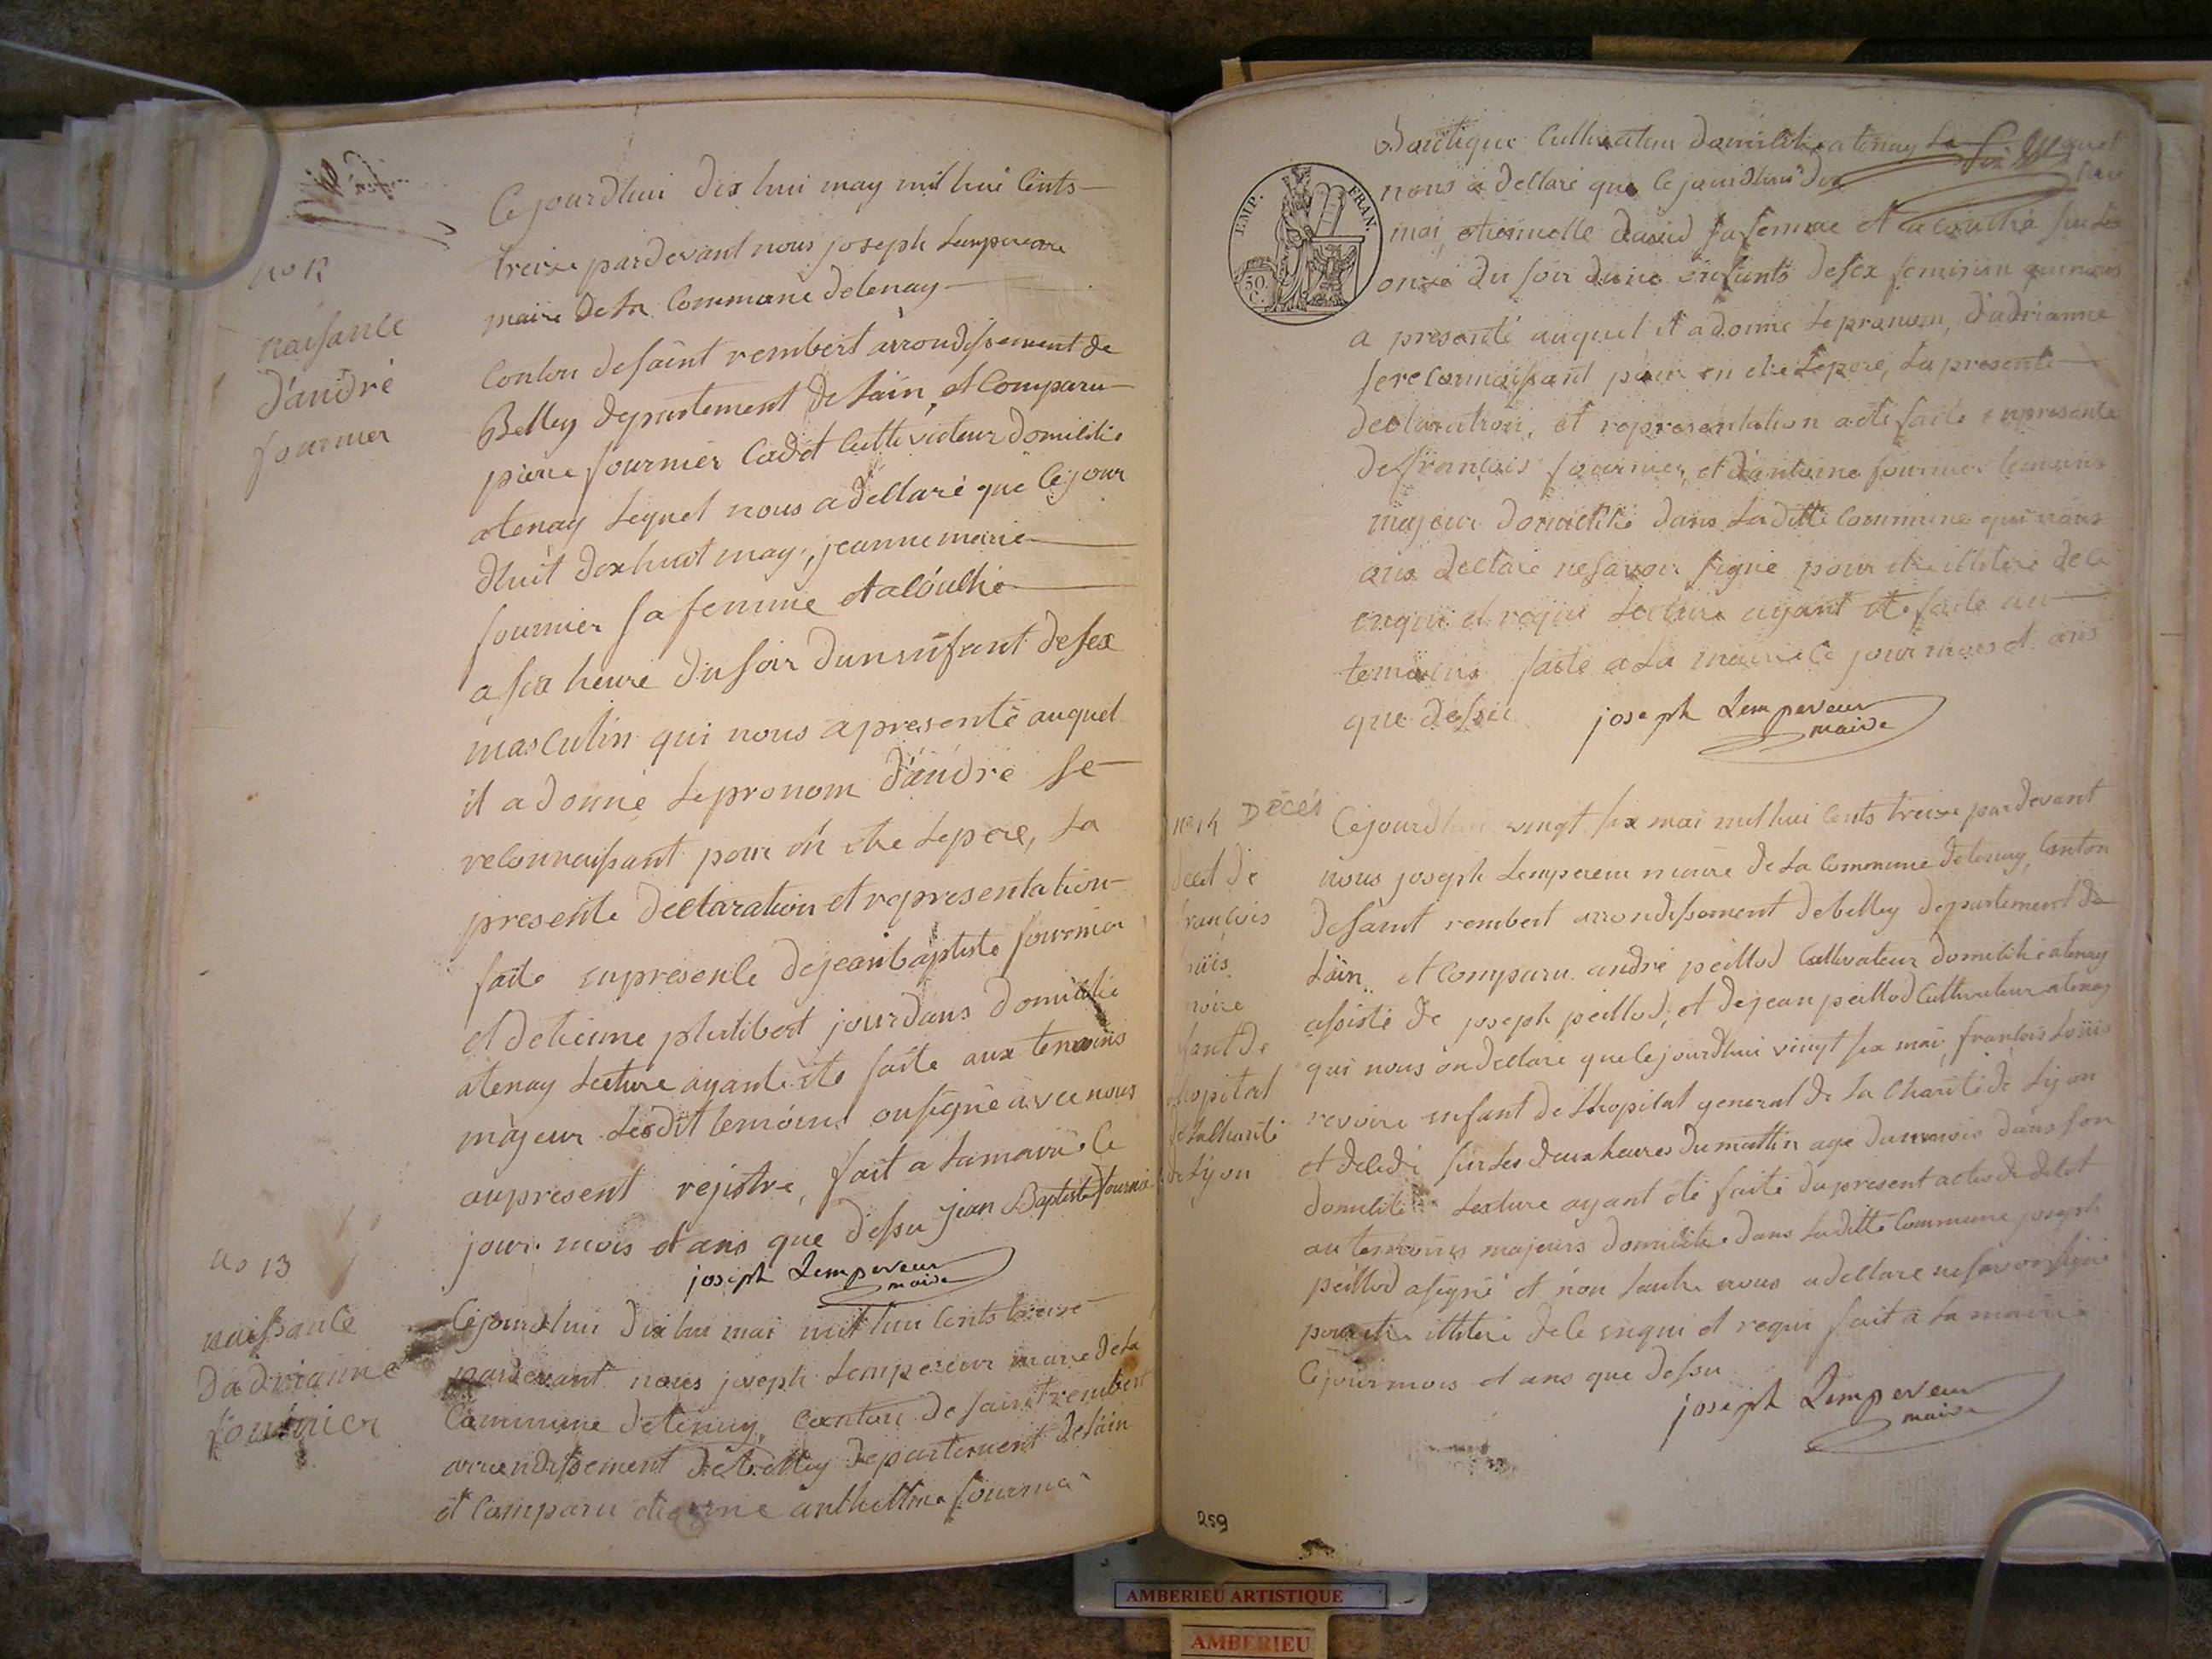 no 12
naissance
d'andré
fournier
Cejourdhui dix hui may mil hui Cents
treize pardevant nous joseph Lempereur
maire De La Commune detenay
Conton desaint rembert arrondissement de
Belley departement de Lain, et Comparu
pierre fournier Cadet Cultivateur domicilié
atenay Lequel nous a dellaré que Cejour
dhuit dix huit may, jeanne marie
fournier sa femme et acouchée
a six heure du soir dun enfant de sex
masculin qui nous apresenté auquel
il a donné Le pronom d'andré se
reconnaissant pour en etre Lepere, La
presente declaration et representation
faite enpresence dejean baptiste fournier
et detienne philibert jourdans domicilié
atenay Lecture ayant été faite aux temoins
majeur Lesdit temoins on signé avec nous
aupresent rejistre, fait a Lamairie Ce
jour mois et ans que dessu jean Baptiste fournier
joseph Lempereur
maire
no 13
naissance
dadrianne
fournier
Cejourdhui dix hui mai mil hui Cents treize
pardevant nous joseph Lempereur maire de La
Commune detenay, Canton de saint rembert
arrondissement de Belley departement de Lain
et Comparu etienne anthelme fournier
EMP. FRAN.
50.
C.
Cultivateur domicilié atenay Le quel
nous a dellaré que Cejourdhui dix
mai, etiennette david sa femme et acouchée sur Les
onze du soir dune enfants desex feminin qui nous
a presenté auquel il a donné Le pronom, d'adrianne
se reconnaissant pour en etre Lepere, La presente
declaration, et representation acte faite enpresence
de françois fournier, et d'antoine fournier temoins
majeur domicilié dans La ditte Commune qui nous
ons declaré nesavoir signé pour etre illiteré de ce
enqui et requi Lecture ayant été faite au
temoins faite a La mairie Ce jour mois et ans
que dessu joseph Lempereur
maire
no 14 Décés
decet de
françois
Loüis
revoire
enfant de
L'hopital
de La Charité
de Lyon
Cejourdhui vingt six mai mil hui Cents treize par devant
nous joseph Lempereur maire de La Commune detenay, Canton
desaint rembert arrondissement debelley departement de
Lain et Comparu andré peillod Cultivateur domicilié atenay
assisté de joseph peillod, et dejean peillod Cultivateur atenay
qui nous on dellaré que Cejourdhui vingt six mai, françois Loüis
revoire enfant de Lhopital general de La Charité de Lyon
et decedé sur Les deux heures du mattin agé dun mois dans son
domicilié Lecture ayant été faite du present actes de decet
au temoins majeurs domicilié dans La ditte Commune joseph
peillod asigné et non Lautre nous a dellaré nesavoir signé
pour etre illiteré de Ce enqui et requi fait a La mairie
Ce jour mois et ans que dessu
joseph Lempereur
maire
259
AMBERIEU ARTISTIQUE
AMBERIEU